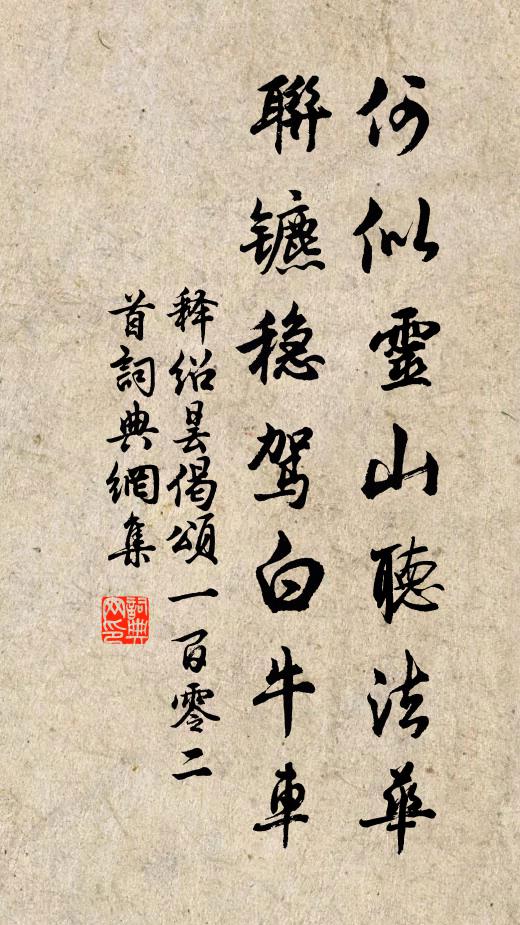 何似靈山聽法華
聯镳穏駕白牛車
释绍昙偈頌一百零二
首詞典網集
詞典网印